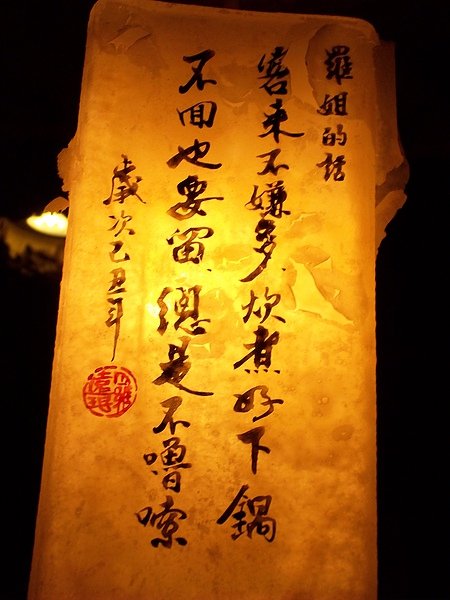 羅姐的話
客來不嫌多,炊煮好下鍋
不回也要留,總是不嚕嗦
歲次己丑年